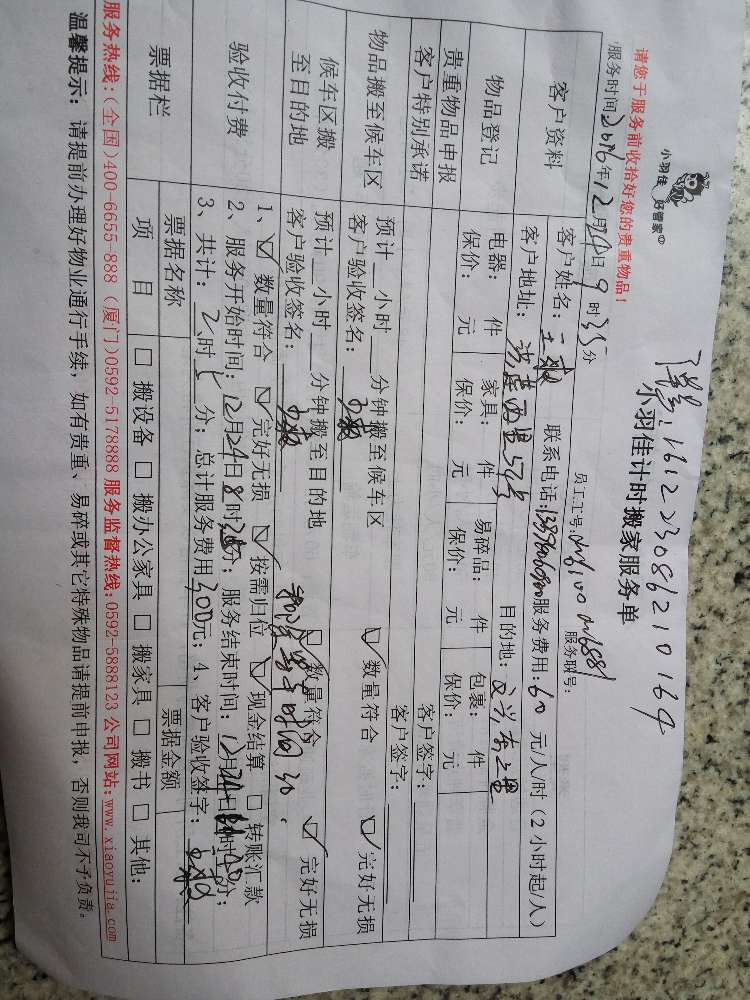 单号:161223086210164
小羽佳 好管家
小羽佳计时搬家服务单
请您于服务前收拾好您的贵重物品!
员工工号: 服务联号:
服务时间2016年12月24日9时35分
客户资料 客户姓名: 联系电话: 服务费用:60元/人/时(2小时起/人)
客户地址: 目的地:
物品登记 电器: 件 家具: 件 易碎品: 件 包裹: 件
贵重物品申报 保价: 元 保价: 元 保价: 元 保价: 元
客户特别承诺 客户签字:
物品搬至候车区 预计 小时 分钟搬至候车区 ☑数量符合 ☑完好无损
客户验收签名: 客户签字:
候车区搬至目的地 预计 小时 分钟搬至目的地 ☑数量符合 ☑完好无损
客户验收签名:
验收付费 1、☑数量符合 ☑完好无损 ☑按需归位 ☑现金结算 □转账汇款
2、服务开始时间:12月24日8时 分;服务结束时间:12月24日 时 分;
3、共计:2时 分;总计服务费用300元;4、客户验收签字:
票据栏 票据名称 票据金额
项目 □搬设备 □搬办公家具 □搬家具 □搬书 □其他:
服务热线:(全国)400-6655-888 (厦门)0592-5178888 服务监督热线:0592-5888123 公司网站:www.xiaoyujia.com
温馨提示:请提前办理好物业通行手续,如有贵重、易碎或其它特殊物品请提前申报,否则我司不予负责。